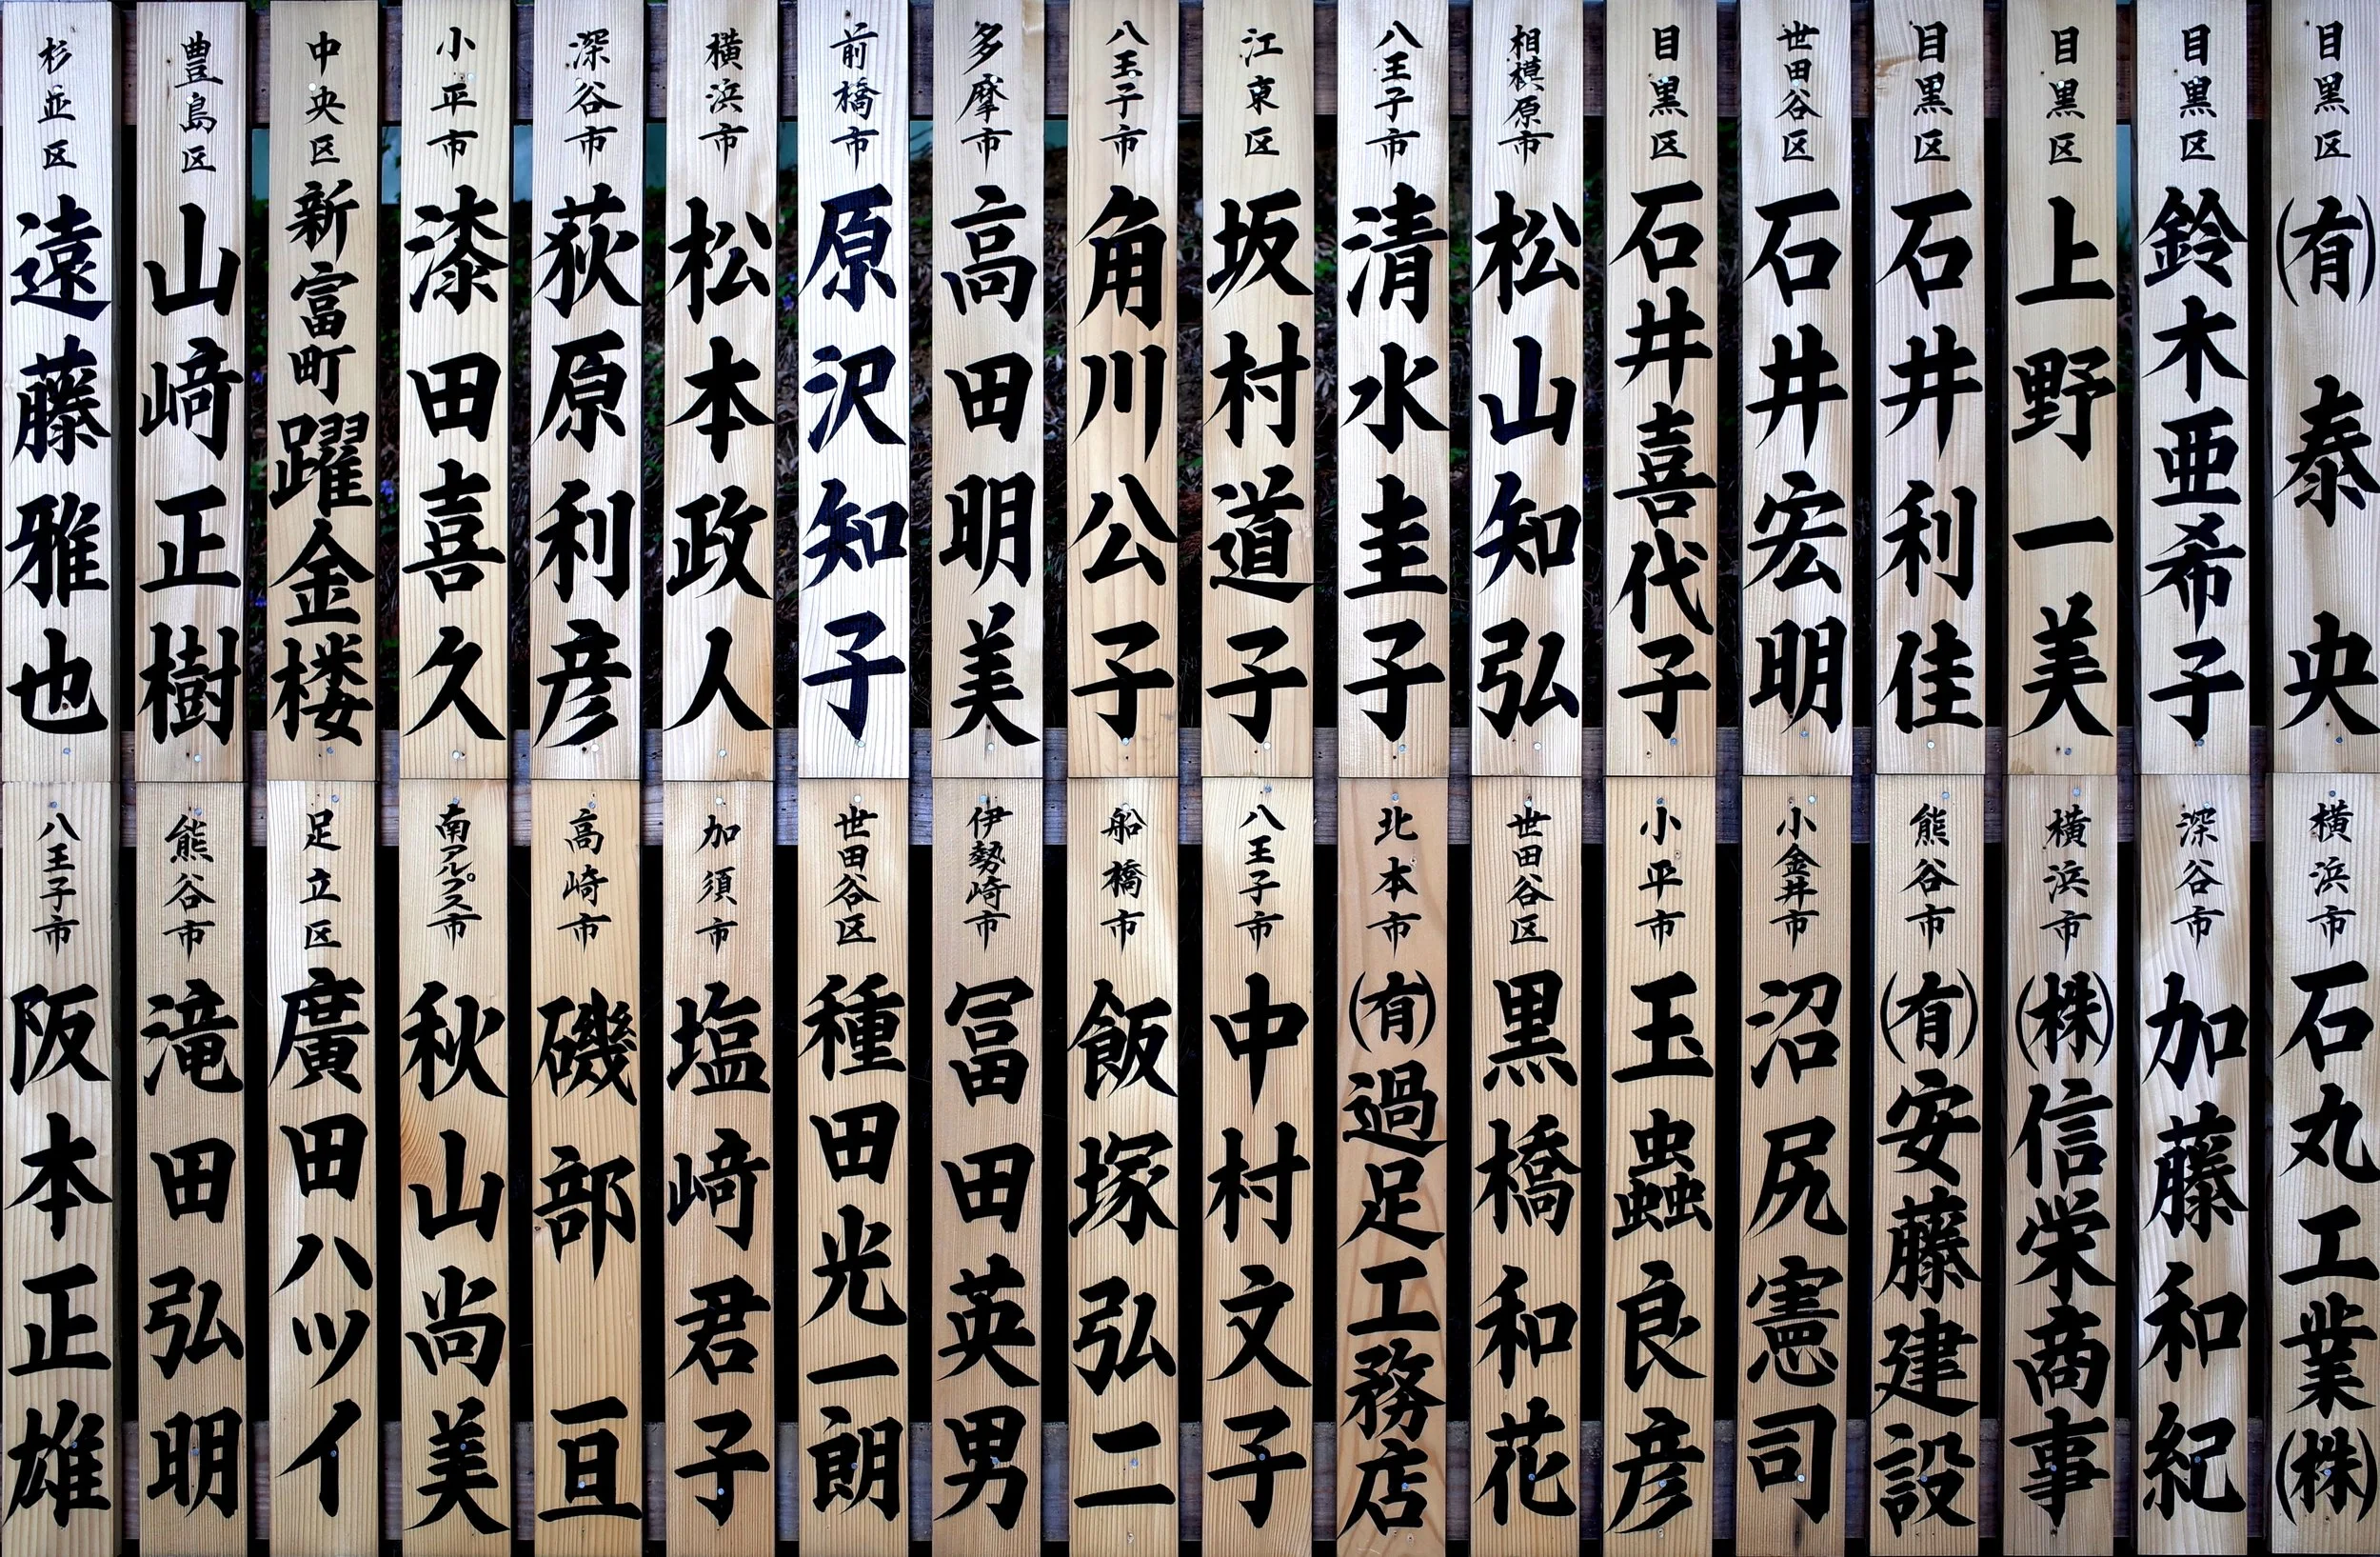 目黒区 (有)泰央
目黒区 鈴木亜希子
目黒区 上野一美
目黒区 石井利佳
世田谷区 石井宏明
目黒区 石井喜代子
相模原市 松山知弘
八王子市 清水圭子
江東区 坂村道子
八王子市 角川公子
多摩市 高田明美
前橋市 原沢知子
横浜市 松本政人
深谷市 荻原利彦
小平市 漆田喜久
中央区 新富町 躍金楼
豊島区 山﨑正樹
杉並区 遠藤雅也
横浜市 石丸工業(株)
深谷市 加藤和紀
横浜市 (株)信栄商事
熊谷市 (有)安藤建設
小金井市 沼尻憲司
小平市 玉蟲良彦
世田谷区 黒橋和花
北本市 (有)過足工務店
八王子市 中村文子
船橋市 飯塚弘二
伊勢崎市 冨田英男
世田谷区 種田光一朗
加須市 塩﨑君子
高崎市 磯部亘
南アルプス市 秋山尚美
足立区 廣田ハツイ
熊谷市 滝田弘明
八王子市 阪本正雄